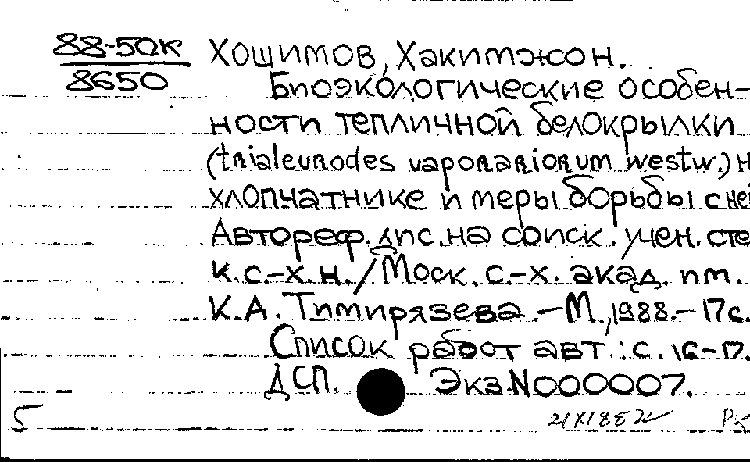 88-50к
8650
Хошимов, Хакимжон.
Биоэкологические особен-
ности тепличной белокрылки
(trialeurodes vaporariorum westw.) н
хлопчатнике и меры борьбы с не
Автореф. дис. на соиск. учен. сте
к.с-х.н. / Моск. с.-х. акад. им.
К.А. Тимирязева. - М., 1988. - 17с.
Список работ авт.: с. 16-17.
ДСП. Экз N000007.
5